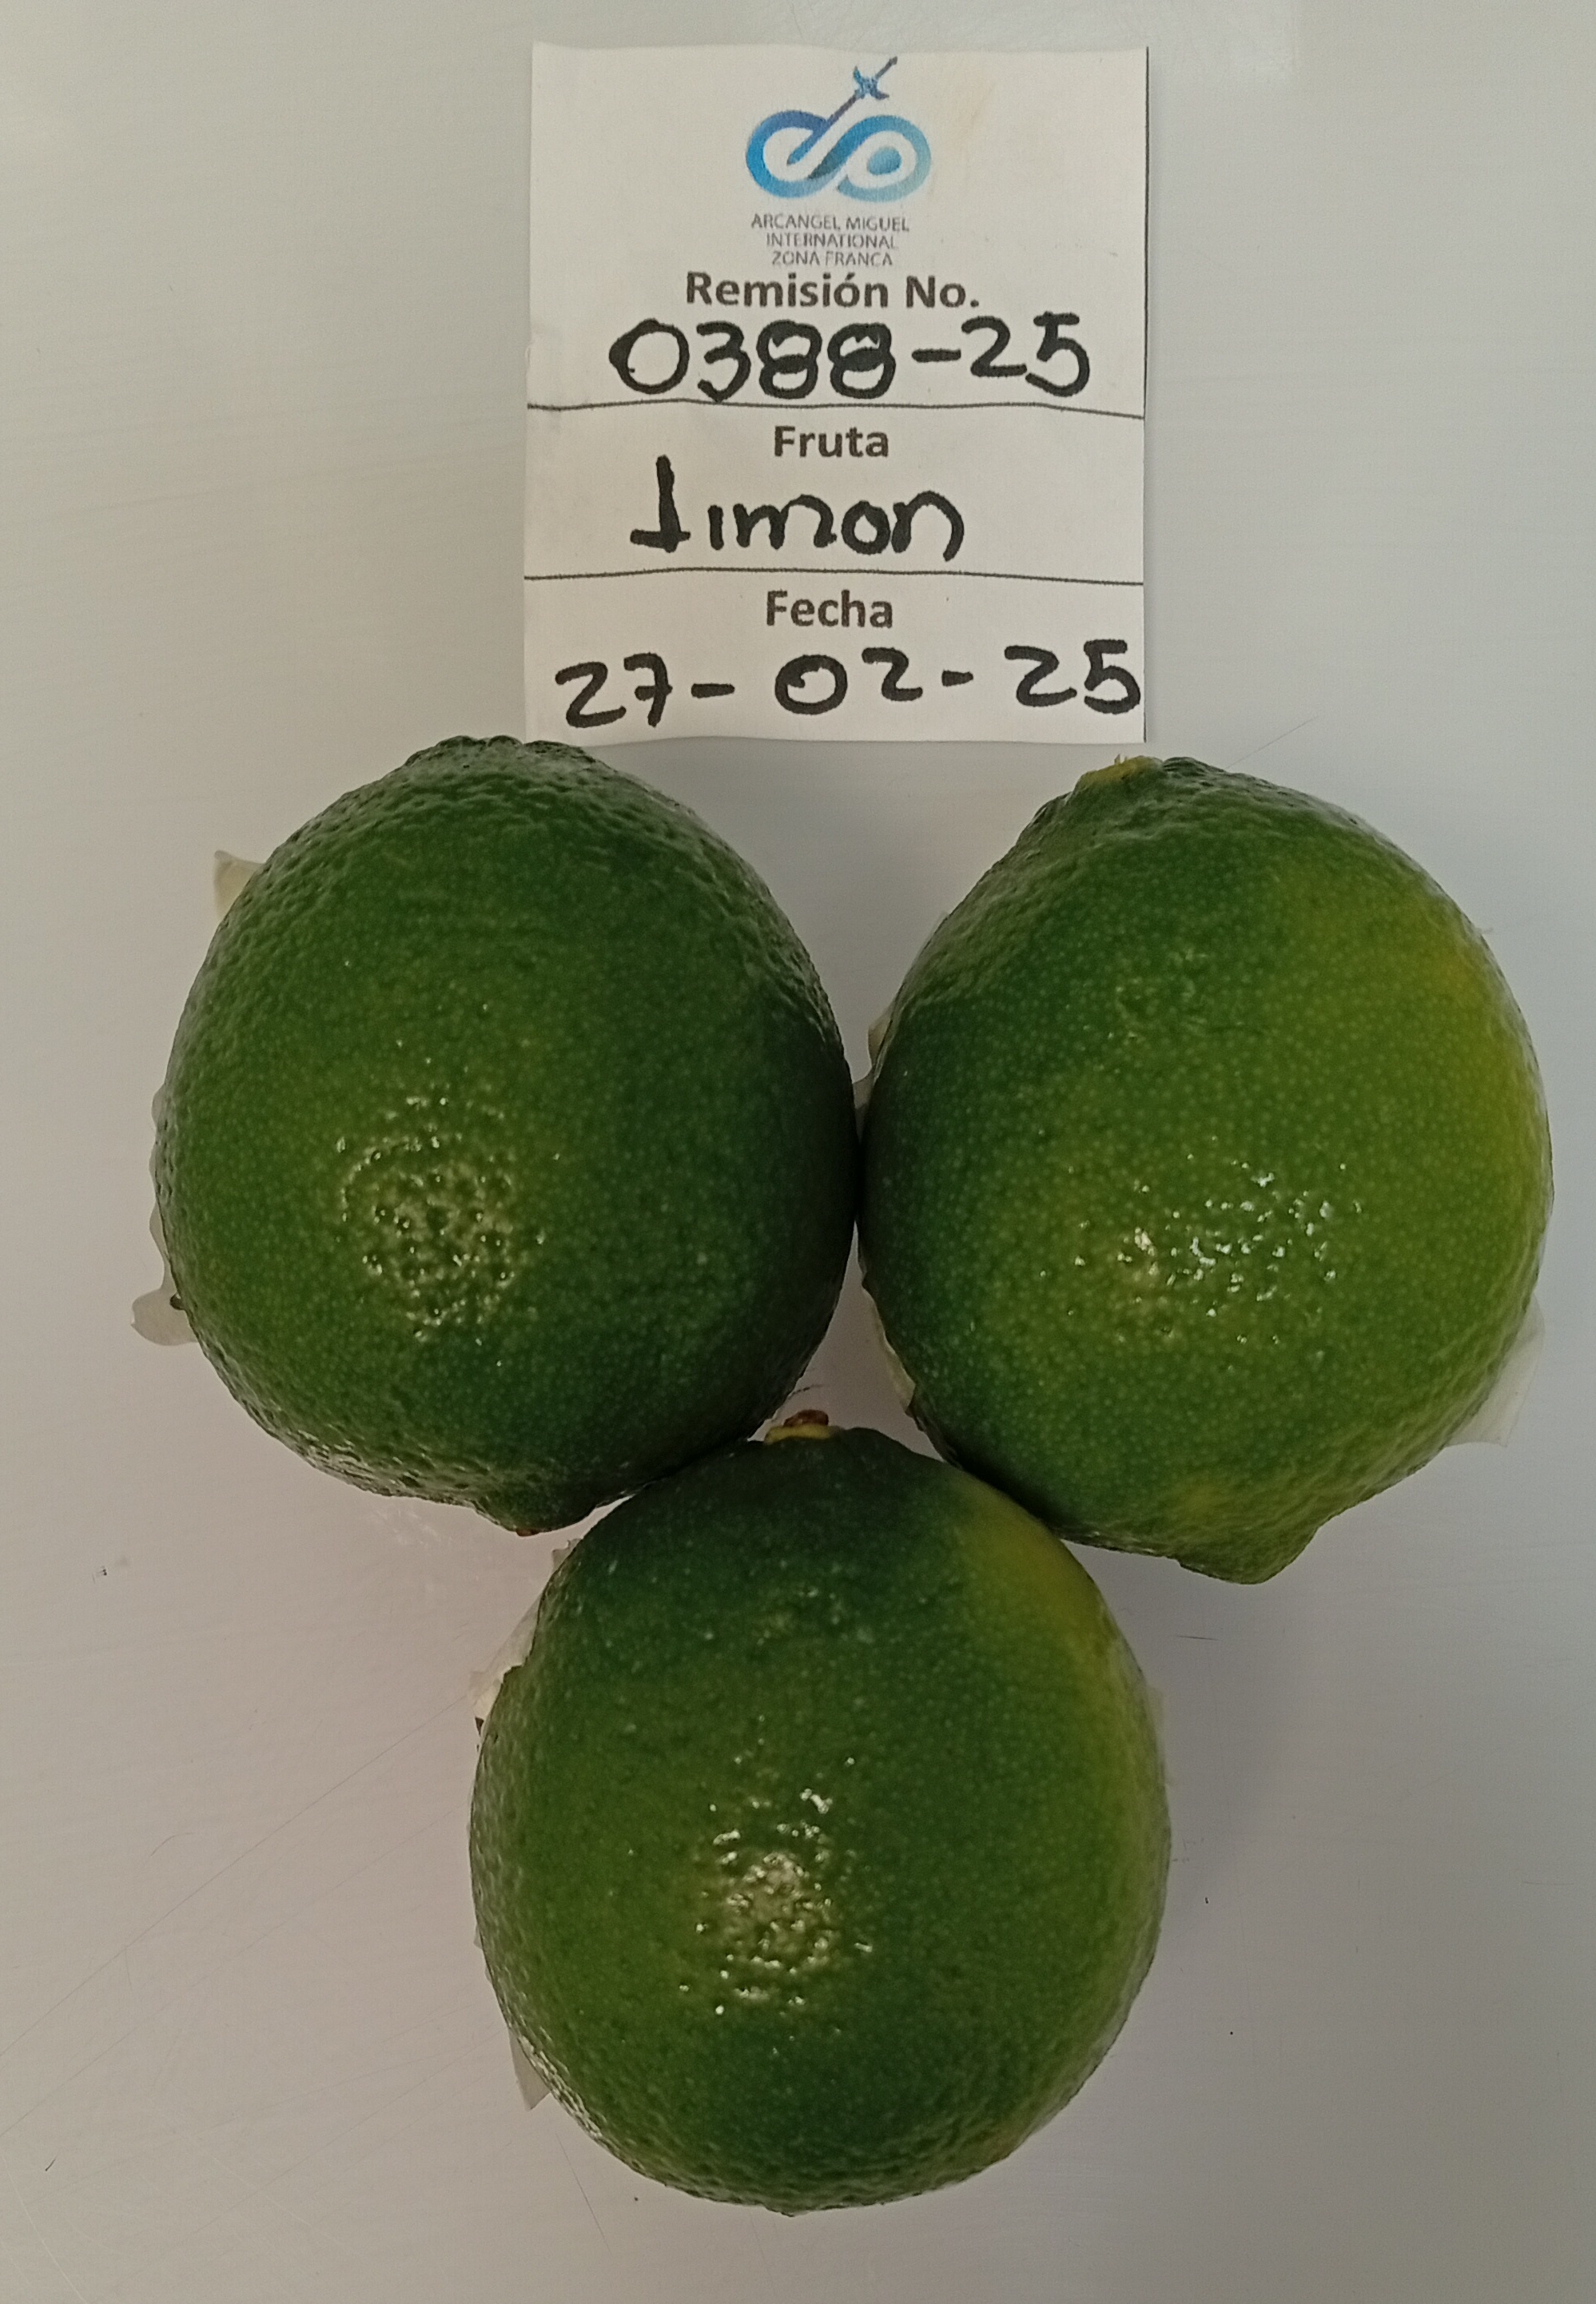 ARCANGEL MIGUEL
INTERNATIONAL
ZONA FRANCA
Remisión No.
0388-25
Fruta
Limon
Fecha
27-02-25